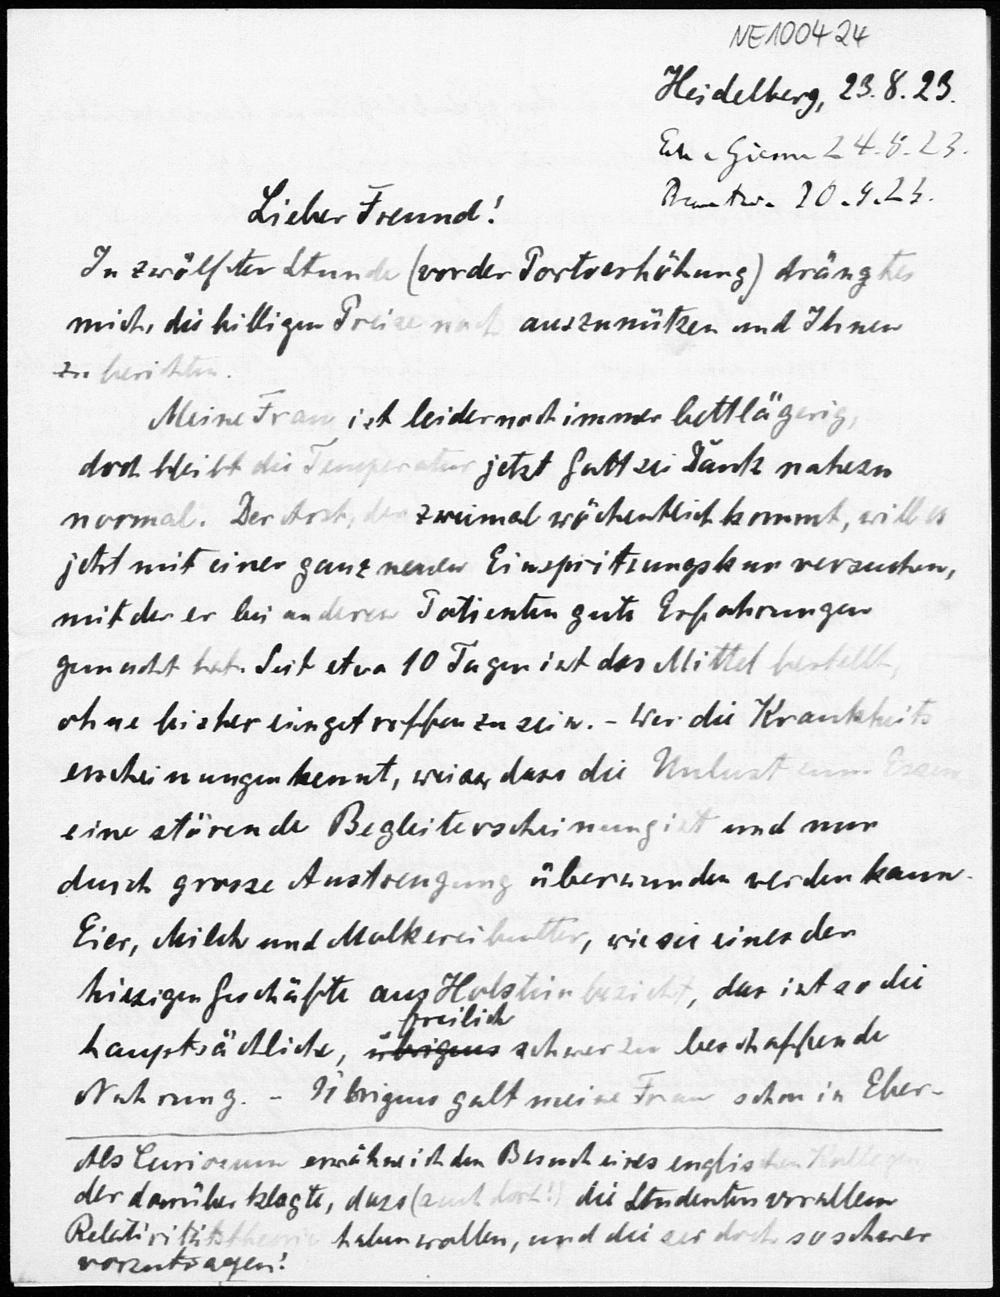 NE100424
Heidelberg, 23.8.23.
24.8.23.
Lieber Freund!
In zwölfter Stunde (vor der Portoerhöhung) drängt es
mich, die billigen Preise noch auszunützen und Ihnen
zu berichten.
Meine Frau ist leider noch immer bettlägerig,
doch bleibt die Temperatur jetzt Gott sei Dank nahezu
normal. Der Arzt, der zweimal wöchentlich kommt, will es
jetzt mit einer ganz neuen Einspritzungskur versuchen,
mit der er bei anderen Patienten gute Erfahrungen
gemacht hat. Seit etwa 10 Tagen ist das Mittel bestellt,
ohne bisher eingetroffen zu sein. - Wer die Krankheits
erscheinungen kennt, weiss, dass die Unlust zum Essen
eine störende Begleiterscheinung ist und nur
durch grosse Anstrengung überwunden werden kann.
Eier, Milch und Molkereibutter, wie sie eines der
hiesigen Geschäfte aus Holstein bezieht, das ist so die
freilich
hauptsächliche, übrigens schwer zu beschaffende
Nahrung. - Übrigens galt meine Frau schon in Eber-
Als Curiosum erwähne ich den Besuch eines englischen Kollegen
der darüber klagte, dass (auch dort!) die Studenten vor allem
Relativitätstheorie haben wollen, und die sei doch so schwer
vorzutragen!